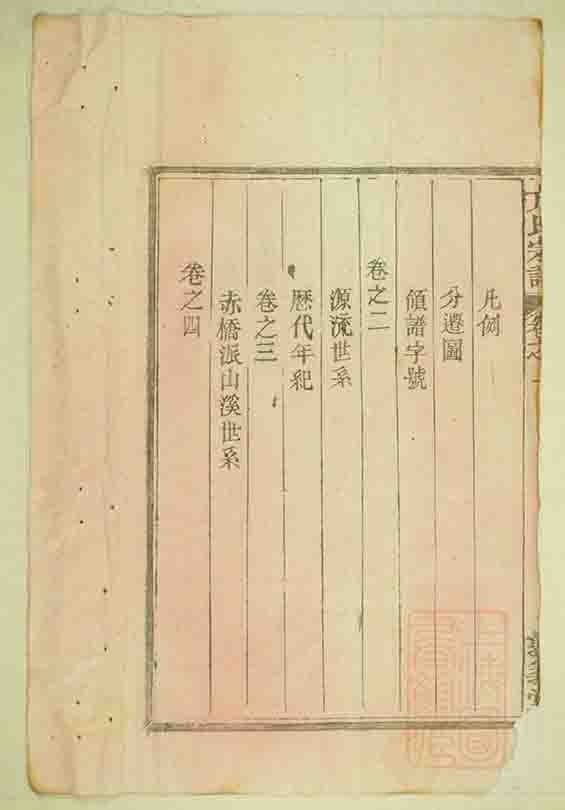 氏宗譜 卷之一
凡例
分遷圖
領譜字號
卷之二
源流世系
歷代年紀
卷之三
赤橋派山溪世系
卷之四